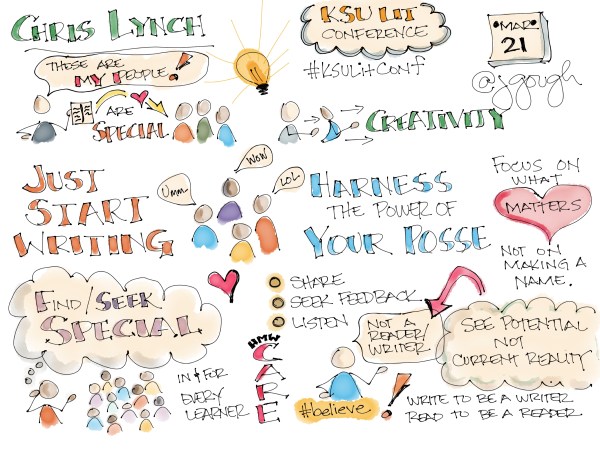 CHRIS LYNCH
THESE ARE
MY PEOPLE!
ARE
SPECIAL
KSU LIT
CONFERENCE
#KSULitConf
MAR
21
@jgough
CREATIVITY
JUST
START
WRITING
Umm
WOW
LOL
HARNESS
THE POWER OF
YOUR POSSE
FOCUS ON
WHAT
MATTERS
NOT ON
MAKING A
NAME.
FIND/SEEK
SPECIAL
IN & FOR
EVERY
LEARNER
SHARE
SEEK FEEDBACK
LISTEN
HMW
CARE
NOT A
READER/
WRITER
#believe
SEE POTENTIAL
NOT
CURRENT REALITY
! WRITE TO BE A WRITER
READ TO BE A READER